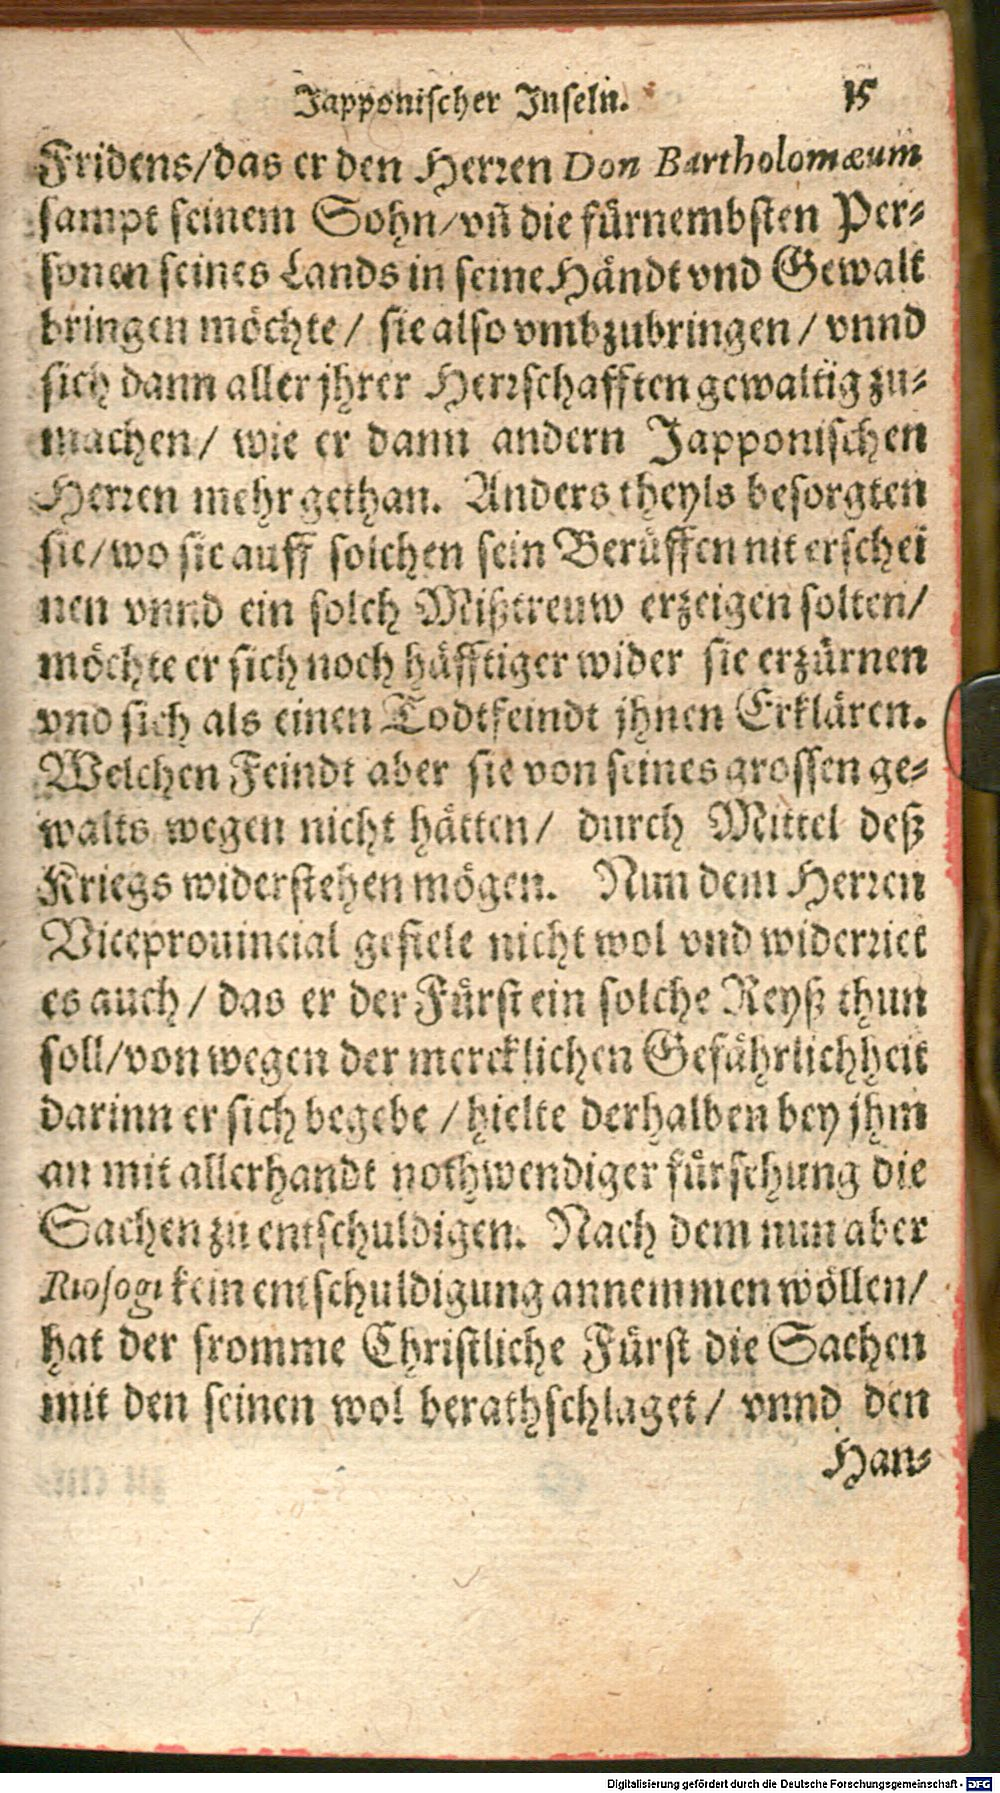 Japponischer Inseln. 15
Fridens/das er den Herꝛen Don Bartholomæum
sampt seinem Sohn/vñ die fürnembsten Per⸗
sonen seines Lands in seine Händt vnd Gewalt
bringen möchte/ sie also vmbzubringen/ vnnd
sich dann aller jhrer Herꝛschafften gewaltig zu⸗
machen/ wie er dann andern Japponischen
Herꝛen mehr gethan. Anders theyls besorgten
sie/wo sie auff solchen sein Berüffen nit erschei
nen vnnd ein solch Mißtreuw erzeigen solten/
möchte er sich noch häfftiger wider sie erzürnen
vnd sich als einen Todtfeindt jhnen Erklären.
Welchen Feindt aber sie von seines grossen ge⸗
walts wegen nicht hätten/ durch Mittel deß
Kriegs widerstehen mögen. Nun dem Herꝛen
Viceprouincial gefiele nicht wol vnd widerꝛiet
es auch/ das er der Fürst ein solche Reyß thun
soll/von wegen der mercklichen Gefährlichheit
darinn er sich begebe/hielte derhalben bey jhm
an mit allerhandt nothwendiger fürsehung die
Sachen zu entschuldigen. Nach dem nun aber
Riosogi kein entschuldigung annemmen wöllen/
hat der fromme Christliche Fürst die Sachen
mit den seinen wol berathschlaget/ vnnd den
Han⸗
Digitalisierung gefördert durch die Deutsche Forschungsgemeinschaft - DFG